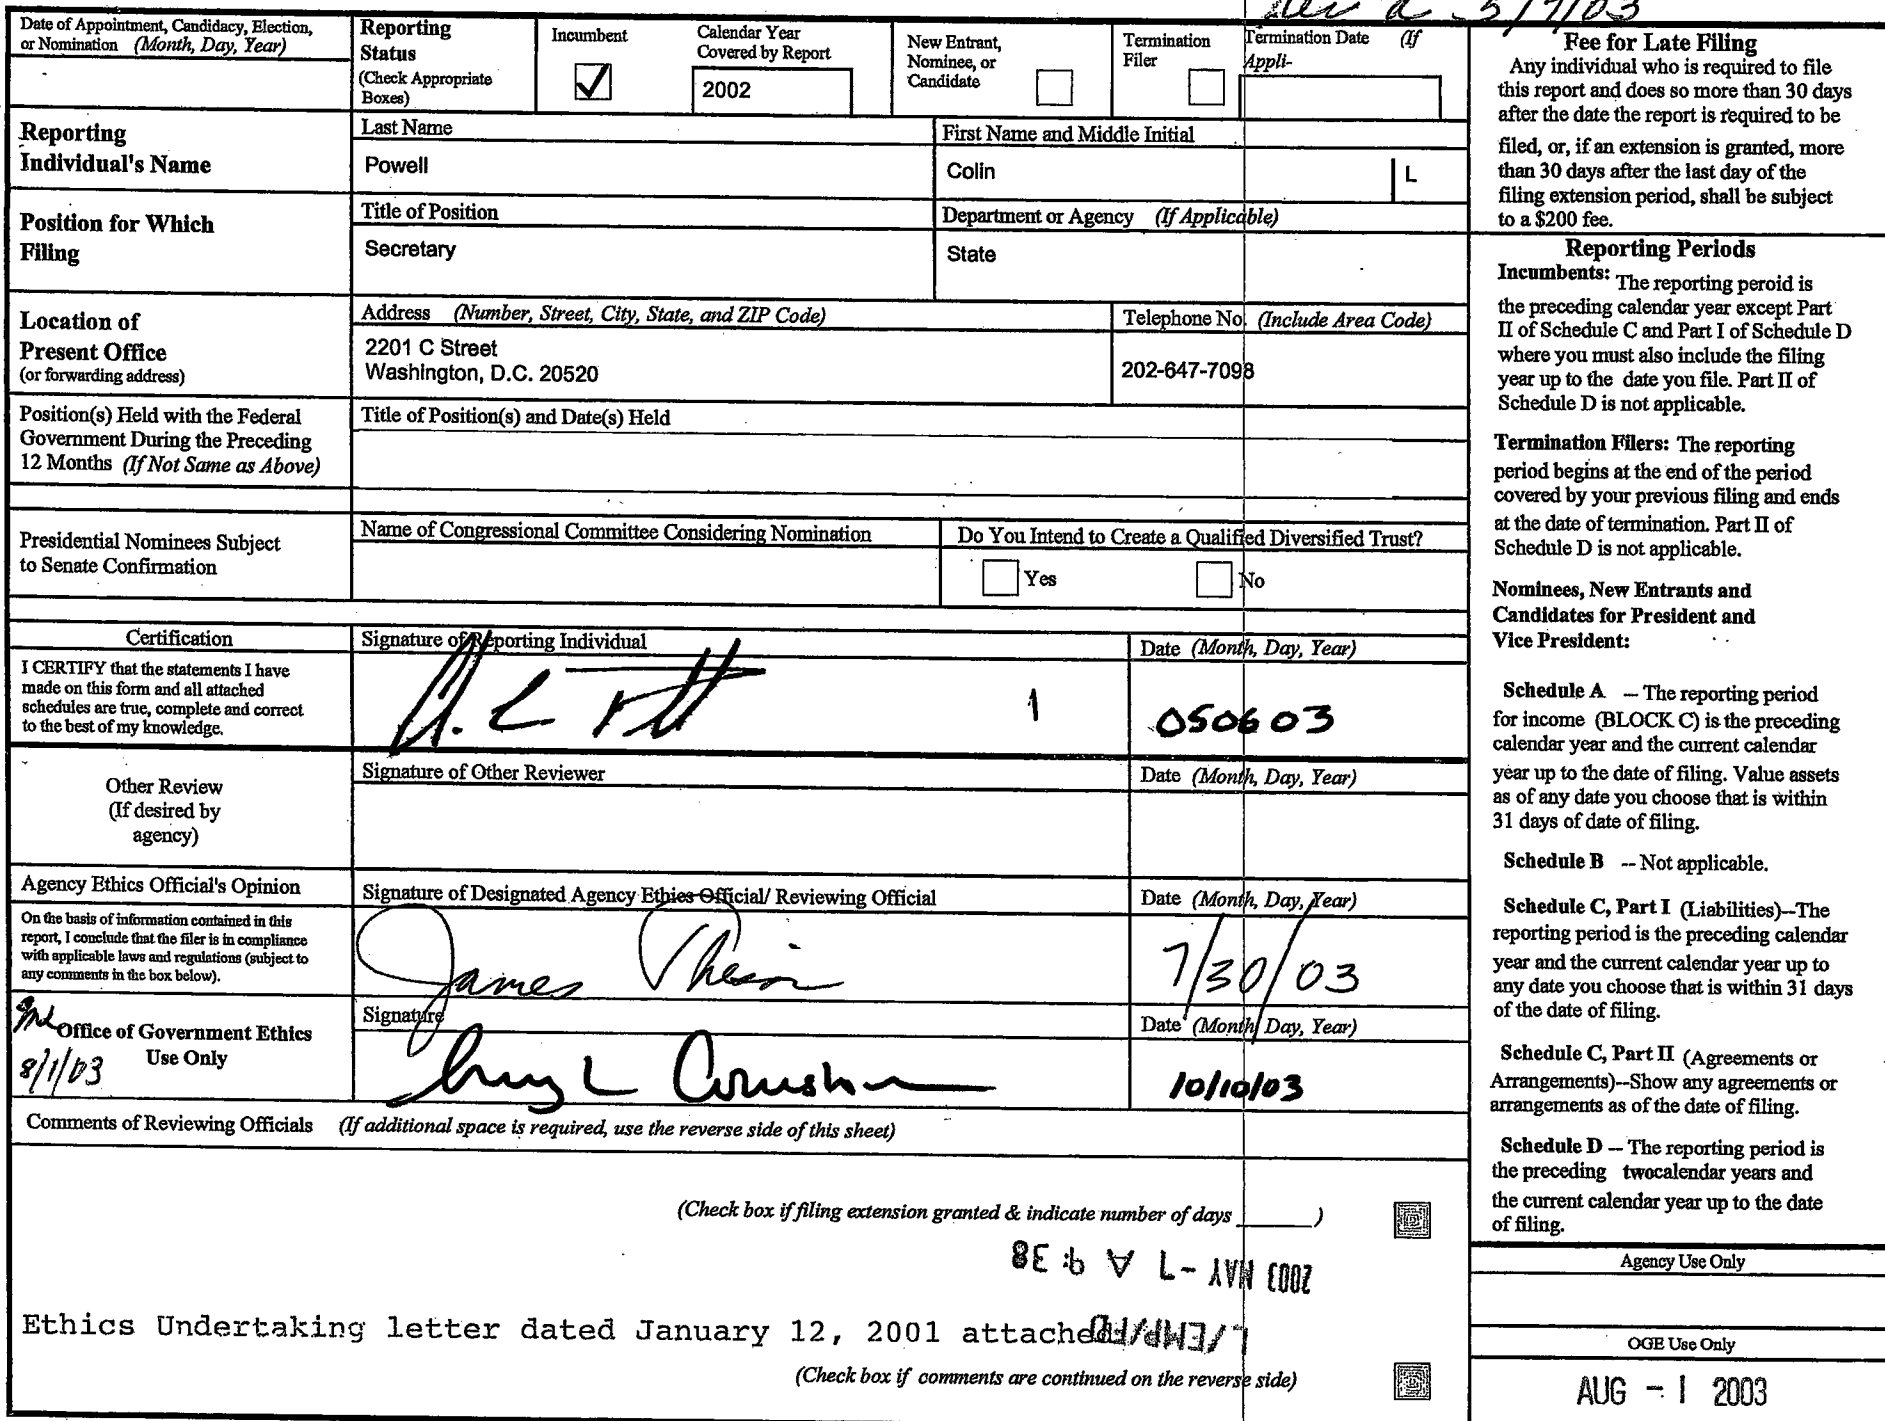 5/7/03
Date of Appointment, Candidacy, Election,
or Nomination (Month, Day, Year)
Reporting
Status
(Check Appropriate
Boxes)
Incumbent
Calendar Year
Covered by Report
2002
New Entrant,
Nominee, or
Candidate
Termination
Filer
Termination Date (If
Appli-
Reporting
Individual's Name
Last Name
Powell
First Name and Middle Initial
Colin
L
Position for Which
Filing
Title of Position
Secretary
Department or Agency (If Applicable)
State
Location of
Present Office
(or forwarding address)
Address (Number, Street, City, State, and ZIP Code)
2201 C Street
Washington, D.C. 20520
Telephone No. (Include Area Code)
202-647-7098
Position(s) Held with the Federal
Government During the Preceding
12 Months (If Not Same as Above)
Title of Position(s) and Date(s) Held
Presidential Nominees Subject
to Senate Confirmation
Name of Congressional Committee Considering Nomination
Do You Intend to Create a Qualified Diversified Trust?
Yes
No
Certification
I CERTIFY that the statements I have
made on this form and all attached
schedules are true, complete and correct
to the best of my knowledge.
Signature of Reporting Individual
Date (Month, Day, Year)
050603
Other Review
(If desired by
agency)
Signature of Other Reviewer
Date (Month, Day, Year)
Agency Ethics Official's Opinion
On the basis of information contained in this
report, I conclude that the filer is in compliance
with applicable laws and regulations (subject to
any comments in the box below).
Signature of Designated Agency Ethics Official/ Reviewing Official
James
Date (Month, Day, Year)
7/30/03
Office of Government Ethics
Use Only
8/1/03
Signature
Date (Month, Day, Year)
10/10/03
Comments of Reviewing Officials (If additional space is required, use the reverse side of this sheet)
(Check box if filing extension granted & indicate number of days ______ )
2003 MAY -7 A 9: 38
Ethics Undertaking letter dated January 12, 2001 attached
L/EMP/FD
(Check box if comments are continued on the reverse side)
Fee for Late Filing
Any individual who is required to file
this report and does so more than 30 days
after the date the report is required to be
filed, or, if an extension is granted, more
than 30 days after the last day of the
filing extension period, shall be subject
to a $200 fee.
Reporting Periods
Incumbents: The reporting peroid is
the preceding calendar year except Part
II of Schedule C and Part I of Schedule D
where you must also include the filing
year up to the date you file. Part II of
Schedule D is not applicable.
Termination Filers: The reporting
period begins at the end of the period
covered by your previous filing and ends
at the date of termination. Part II of
Schedule D is not applicable.
Nominees, New Entrants and
Candidates for President and
Vice President:
Schedule A -- The reporting period
for income (BLOCK C) is the preceding
calendar year and the current calendar
year up to the date of filing. Value assets
as of any date you choose that is within
31 days of date of filing.
Schedule B -- Not applicable.
Schedule C, Part I (Liabilities)--The
reporting period is the preceding calendar
year and the current calendar year up to
any date you choose that is within 31 days
of the date of filing.
Schedule C, Part II (Agreements or
Arrangements)--Show any agreements or
arrangements as of the date of filing.
Schedule D -- The reporting period is
the preceding twocalendar years and
the current calendar year up to the date
of filing.
Agency Use Only
OGE Use Only
AUG - 1 2003